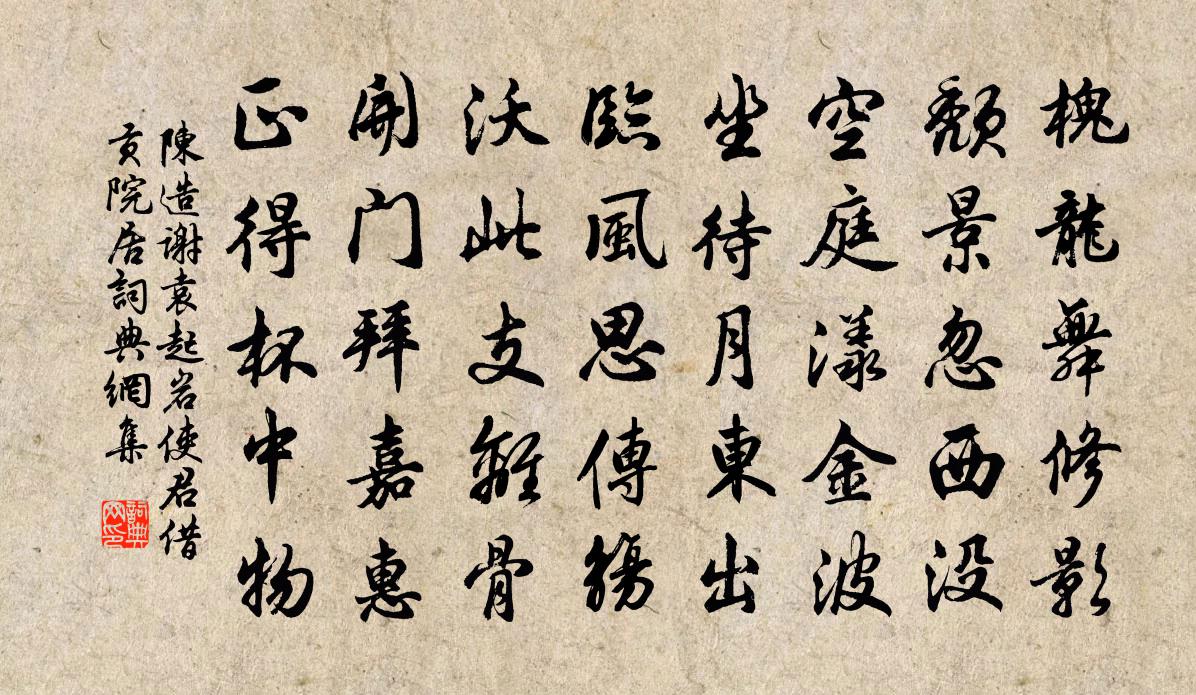 槐龍舞修影
頹景忽西没
空庭漾金波
坐待月東出
臨風思傳觴
沃此支離骨
開門拜嘉惠
正得杯中物
陳造謝袁起岩使君借
貢院居詞典網集
詞典网印